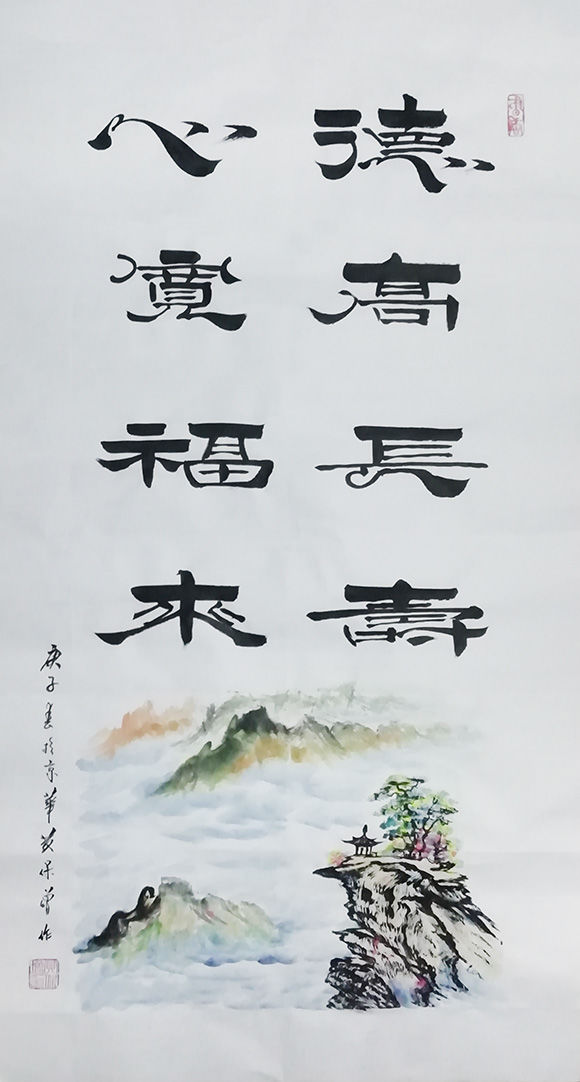 德高長壽
心寬福來
庚子春於京華 作